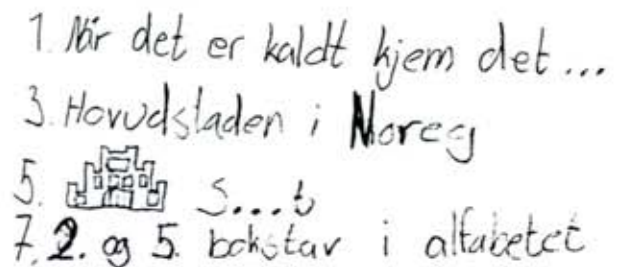 1. Når det er kaldt kjem det...
3. Hovudstaden i Noreg
5. S...t
7. 2. og 5. bokstav i alfabetet